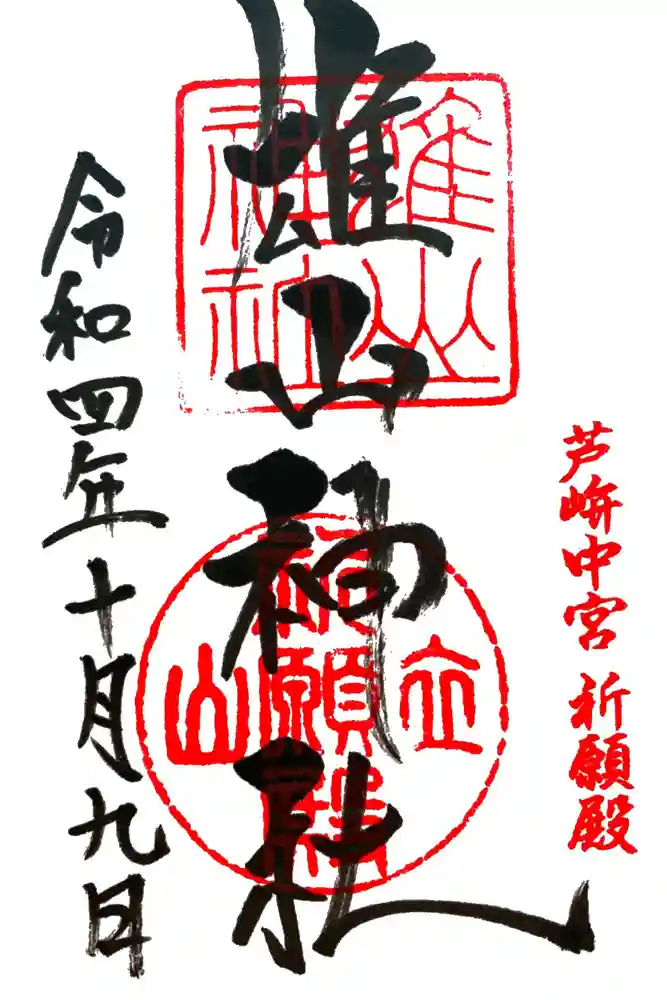 芦峅中宮 祈願殿
雄山神社
雄山
神社
立
祈願殿
山
令和四年十月九日